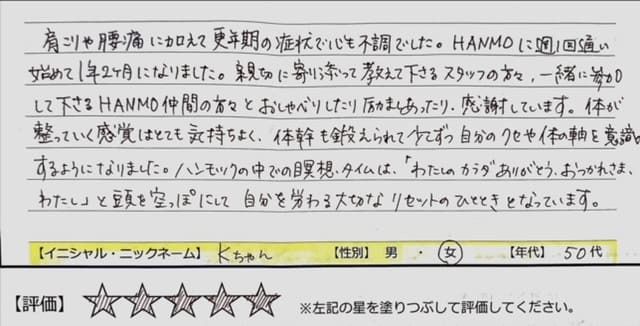 肩こりや腰痛に加えて更年期の症状で心も不調でした。HANMOに週1回通い
始めて1年2ヶ月になりました。親切に寄り添って教えて下さるスタッフの方々、一緒に参加
して下さるHANMO仲間の方々とおしゃべりしたり励ましあったり、感謝しています。体が
整っていく感覚はとても気持ちよく、体幹も鍛えられて少しずつ自分のクセや体の軸を意識
するようになりました。ハンモックの中での瞑想タイムは、「わたしのカラダありがとう、おつかれさま、
わたし」と頭を空っぽにして自分を労わる大切なリセットのひとときとなっています。
【イニシャル・ニックネーム】Kちゃん 【性別】男・女 【年代】50代
【評価】☆☆☆☆☆ ※左記の星を塗りつぶして評価してください。